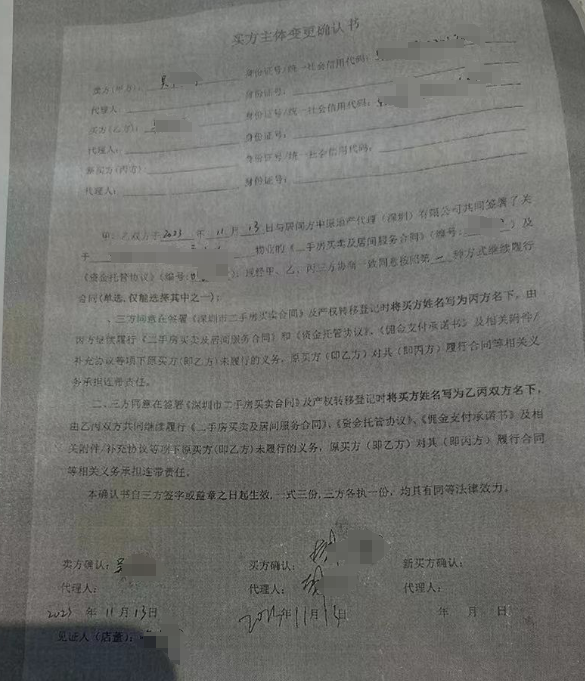 买方主体变更确认书
卖方(甲方): 身份证号/统一社会信用代码:
代理人: 身份证号:
买方(乙方): 身份证号/统一社会信用代码:
代理人: 身份证号:
新买方(丙方): 身份证号/统一社会信用代码:
代理人: 身份证号:
甲、乙双方于2023年11月13日与居间方中原地产代理(深圳)有限公司共同签署了关
于 物业的《二手房买卖及居间服务合同》(编号: )及
《资金托管协议》(编号: ),现经甲、乙、丙三方协商一致同意按照第一种方式继续履行
合同(单选,仅能选择其中之一):
一、三方同意在签署《深圳市二手房买卖合同》及产权转移登记时将买方姓名写为丙方名下,由
丙方继续履行《二手房买卖及居间服务合同》和《资金托管协议》、《佣金支付承诺书》及相关附件/
补充协议等项下原买方(即乙方)未履行的义务,原买方(即乙方)对其(即丙方)履行合同等相关义
务承担连带责任。
二、三方同意在签署《深圳市二手房买卖合同》及产权转移登记时将买方姓名写为乙丙双方名下,
由乙丙双方共同继续履行《二手房买卖及居间服务合同》、《资金托管协议》、《佣金支付承诺书》及相
关附件/补充协议等项下原买方(即乙方)未履行的义务,原买方(即乙方)对其(即丙方)履行合同
等相关义务承担连带责任。
本确认书自三方签字或盖章之日起生效,一式三份,三方各执一份,均具有同等法律效力。
卖方确认: 买方确认: 新买方确认:
代理人: 代理人: 代理人:
2023年11月13日 年11月14日 年 月 日
见证人(店董):